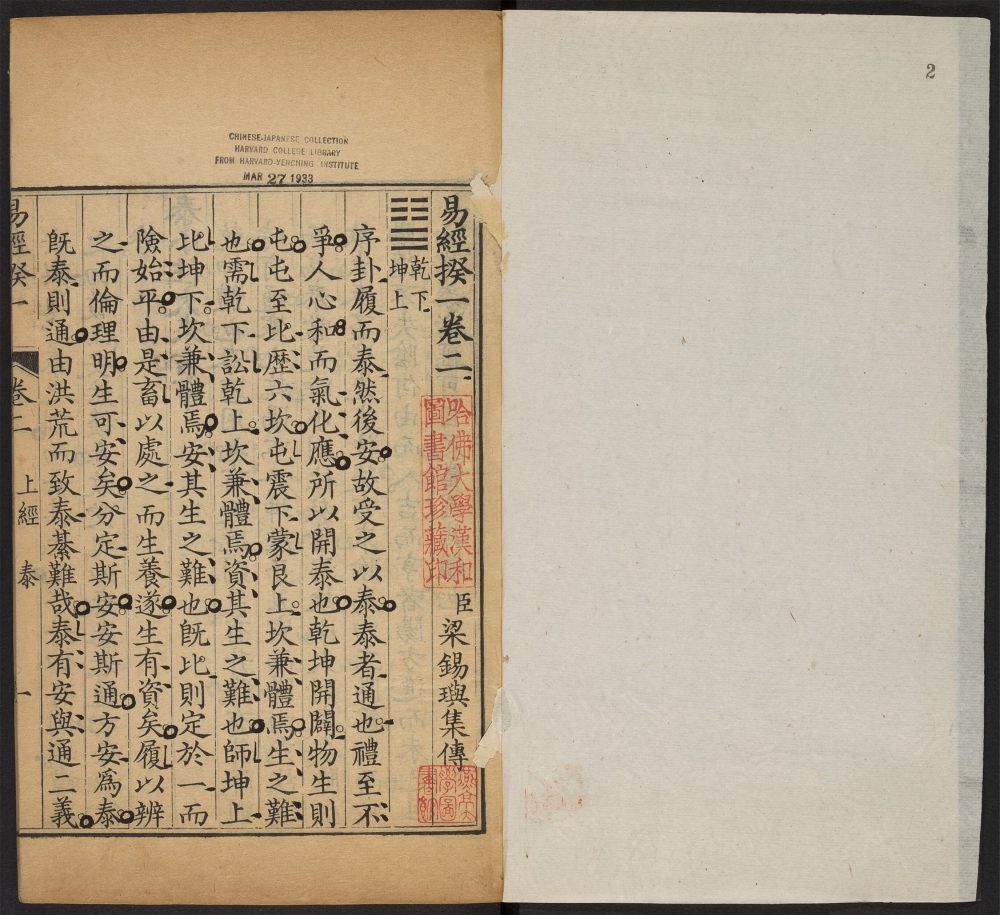 2
CHINESE-JAPANESE COLLECTION
HARVARD COLLEGE LIBRARY
FROM HARVARD-YENCHING INSTITUTE
MAR 27 1933
易經揆一卷二
哈佛大學漢和
圖書館珍藏印
臣梁錫璵集傳
乾下
坤上
序卦履而泰然後安故受之以泰泰者通也禮至不
爭人心和而氣化應所以開泰也乾坤開闢物生則
屯屯至比歴六坎屯震下蒙艮上坎兼體焉生之難
也需乾下訟乾上坎兼體焉資其生之難也師坤上
比坤下坎兼體焉安其生之難也旣比則定於一而
險始平由是畜以處之而生養遂生有資矣履以辨
之而倫理明生可安矣分定斯安安斯通方安爲泰
旣泰則通由洪荒而致泰綦難哉泰有安與通二義
易經揆一 卷二 上經 泰 一